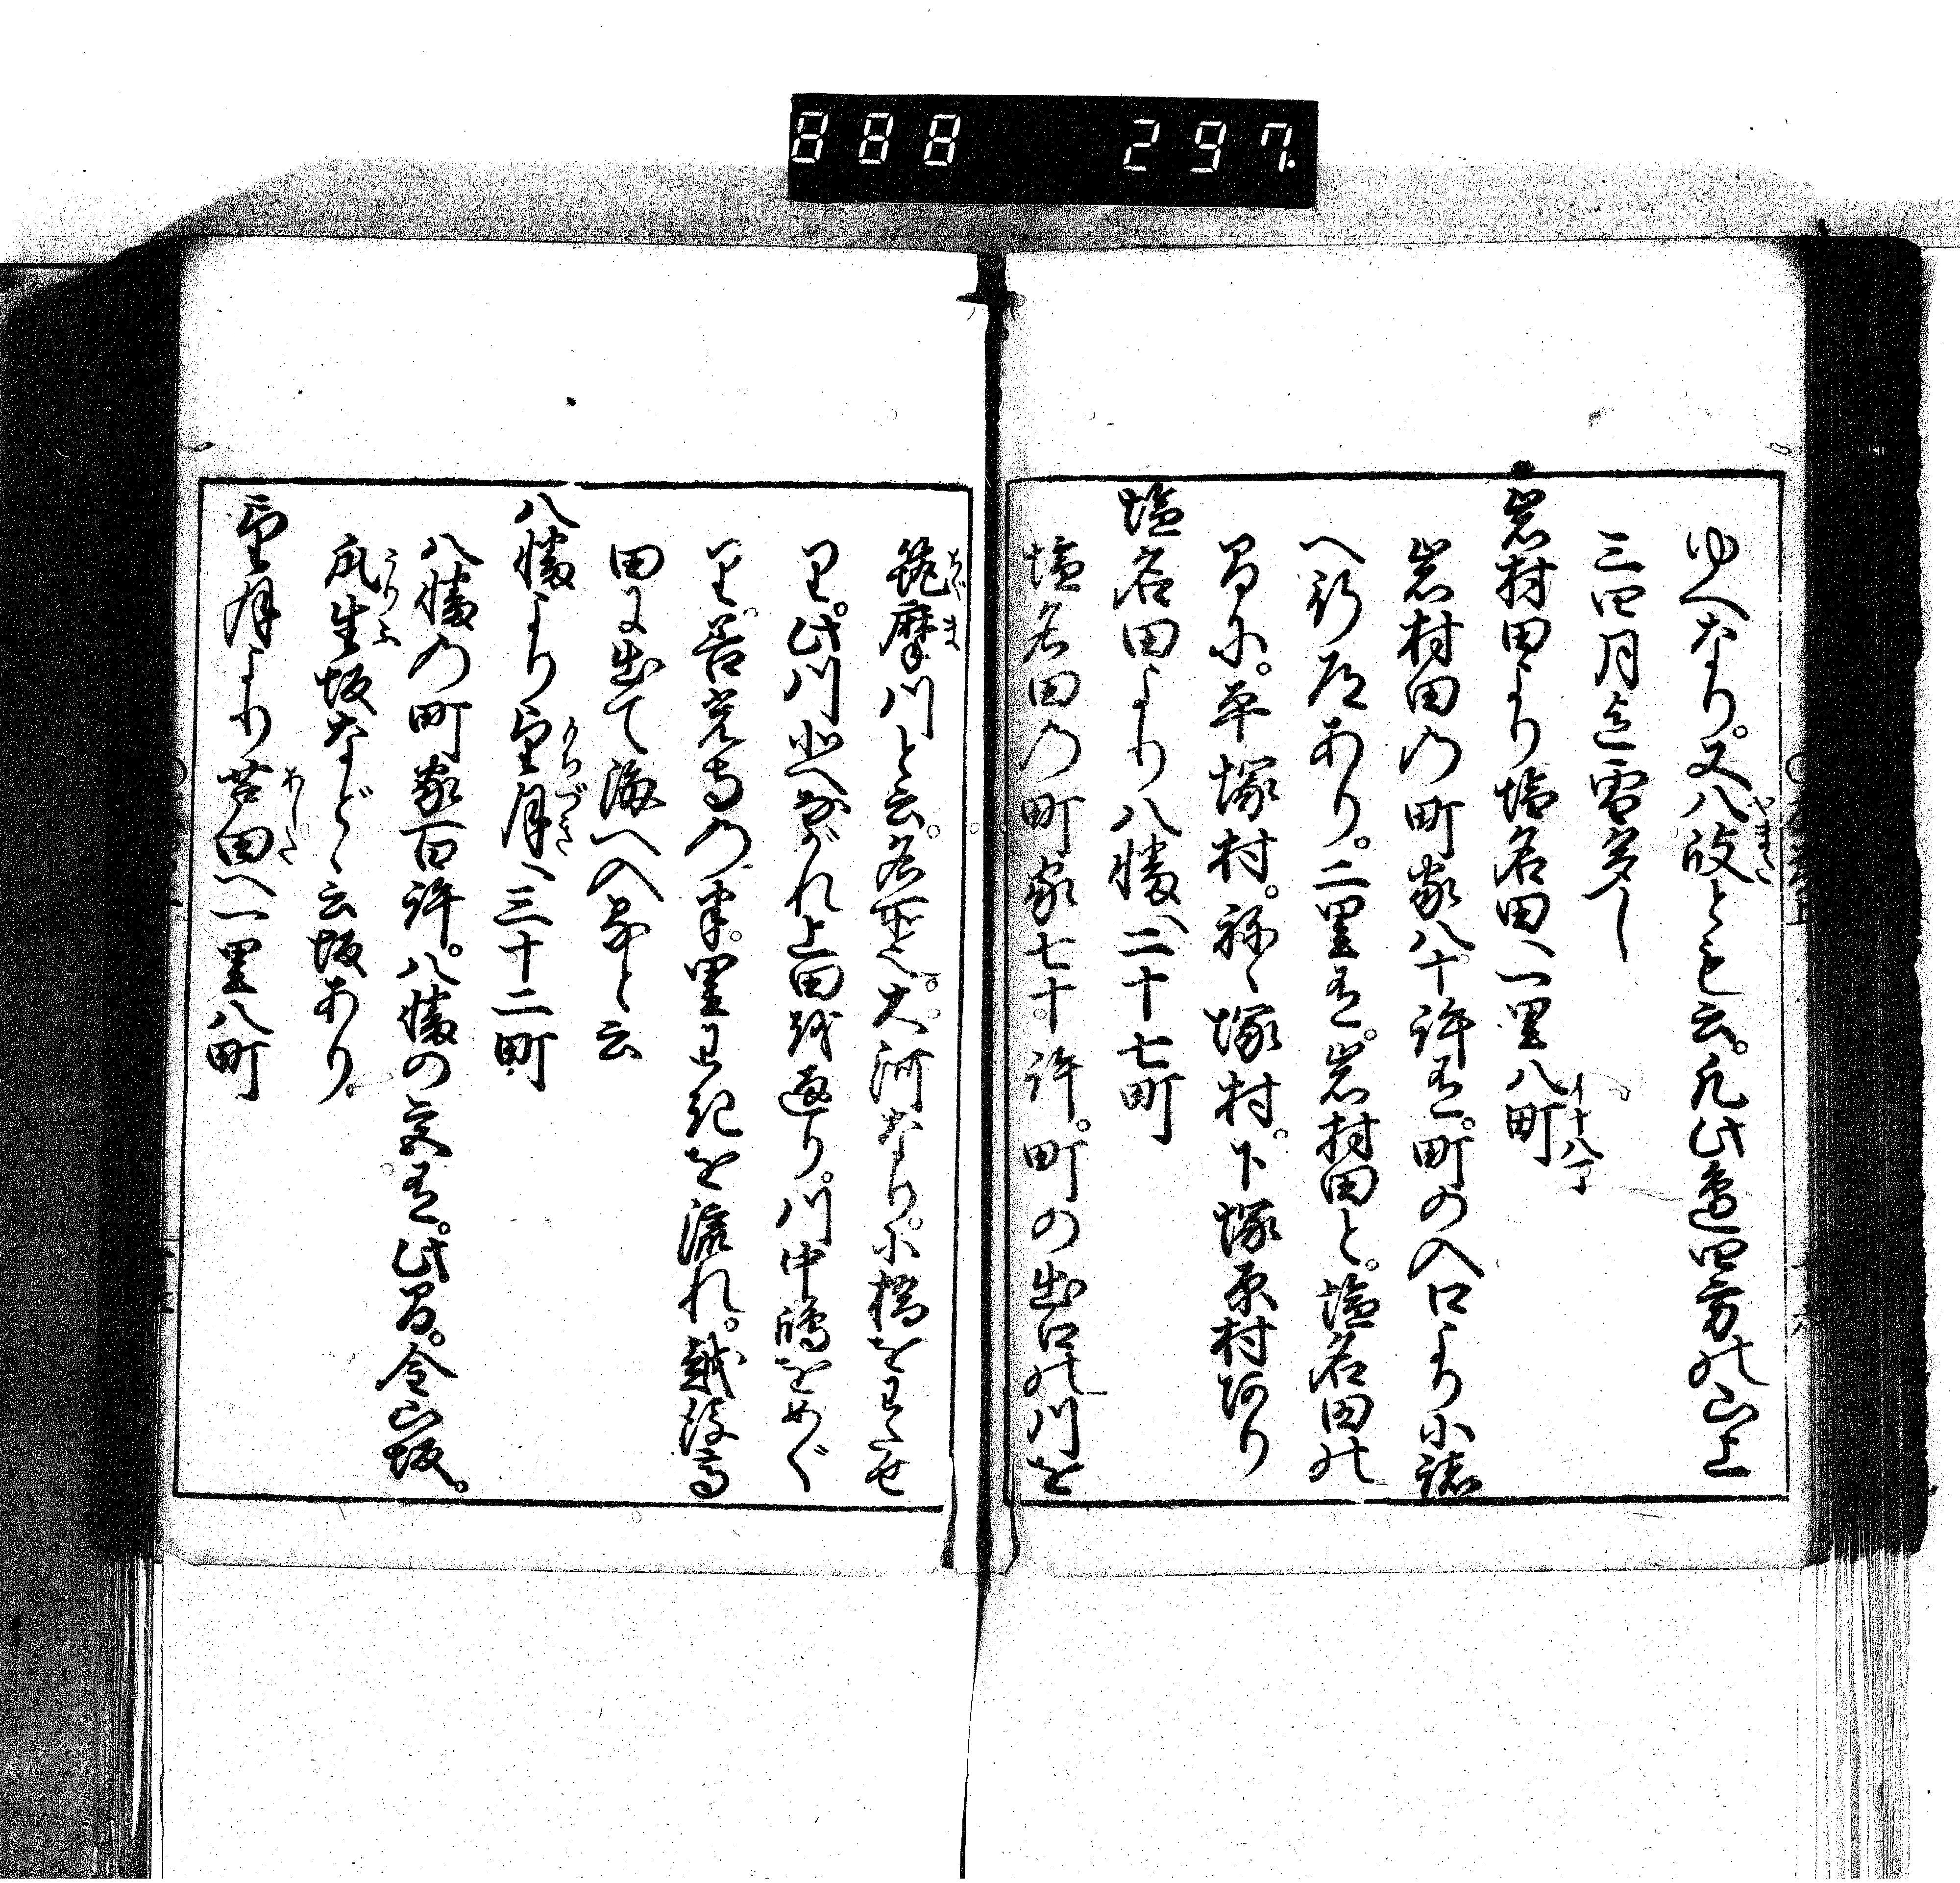 888 297.
ゆへなり。又八岐とも云。凡此邊四方の山上
やまた
三四月迄雪多し
岩村田より塩名田へ一里八町
イ十八丁
岩村田の町家八十許有。町の入口より小諸
へ行道あり。二里有。岩村田と。塩名田の
間に。平塚村。祢々塚村。下塚原村あり
塩名田より八幡へ二十七町
塩名田の町家七十許。町の出口の川を
筑摩川と云。名所也。大河なり。小橋をわたせ
ちくま
り。此川北へながれ上田越通り。川中嶋をめぐ
り。善光寺の東。里わきを流れ。越後高
田に出て海へ入ると云
八幡より望月へ三十二町
もちづき
八幡の町家百許。八幡の宮有。此間。金山坂。
瓜生坂などゝ云坂あり。
うりふ
望月より芦田へ一里八町
あした